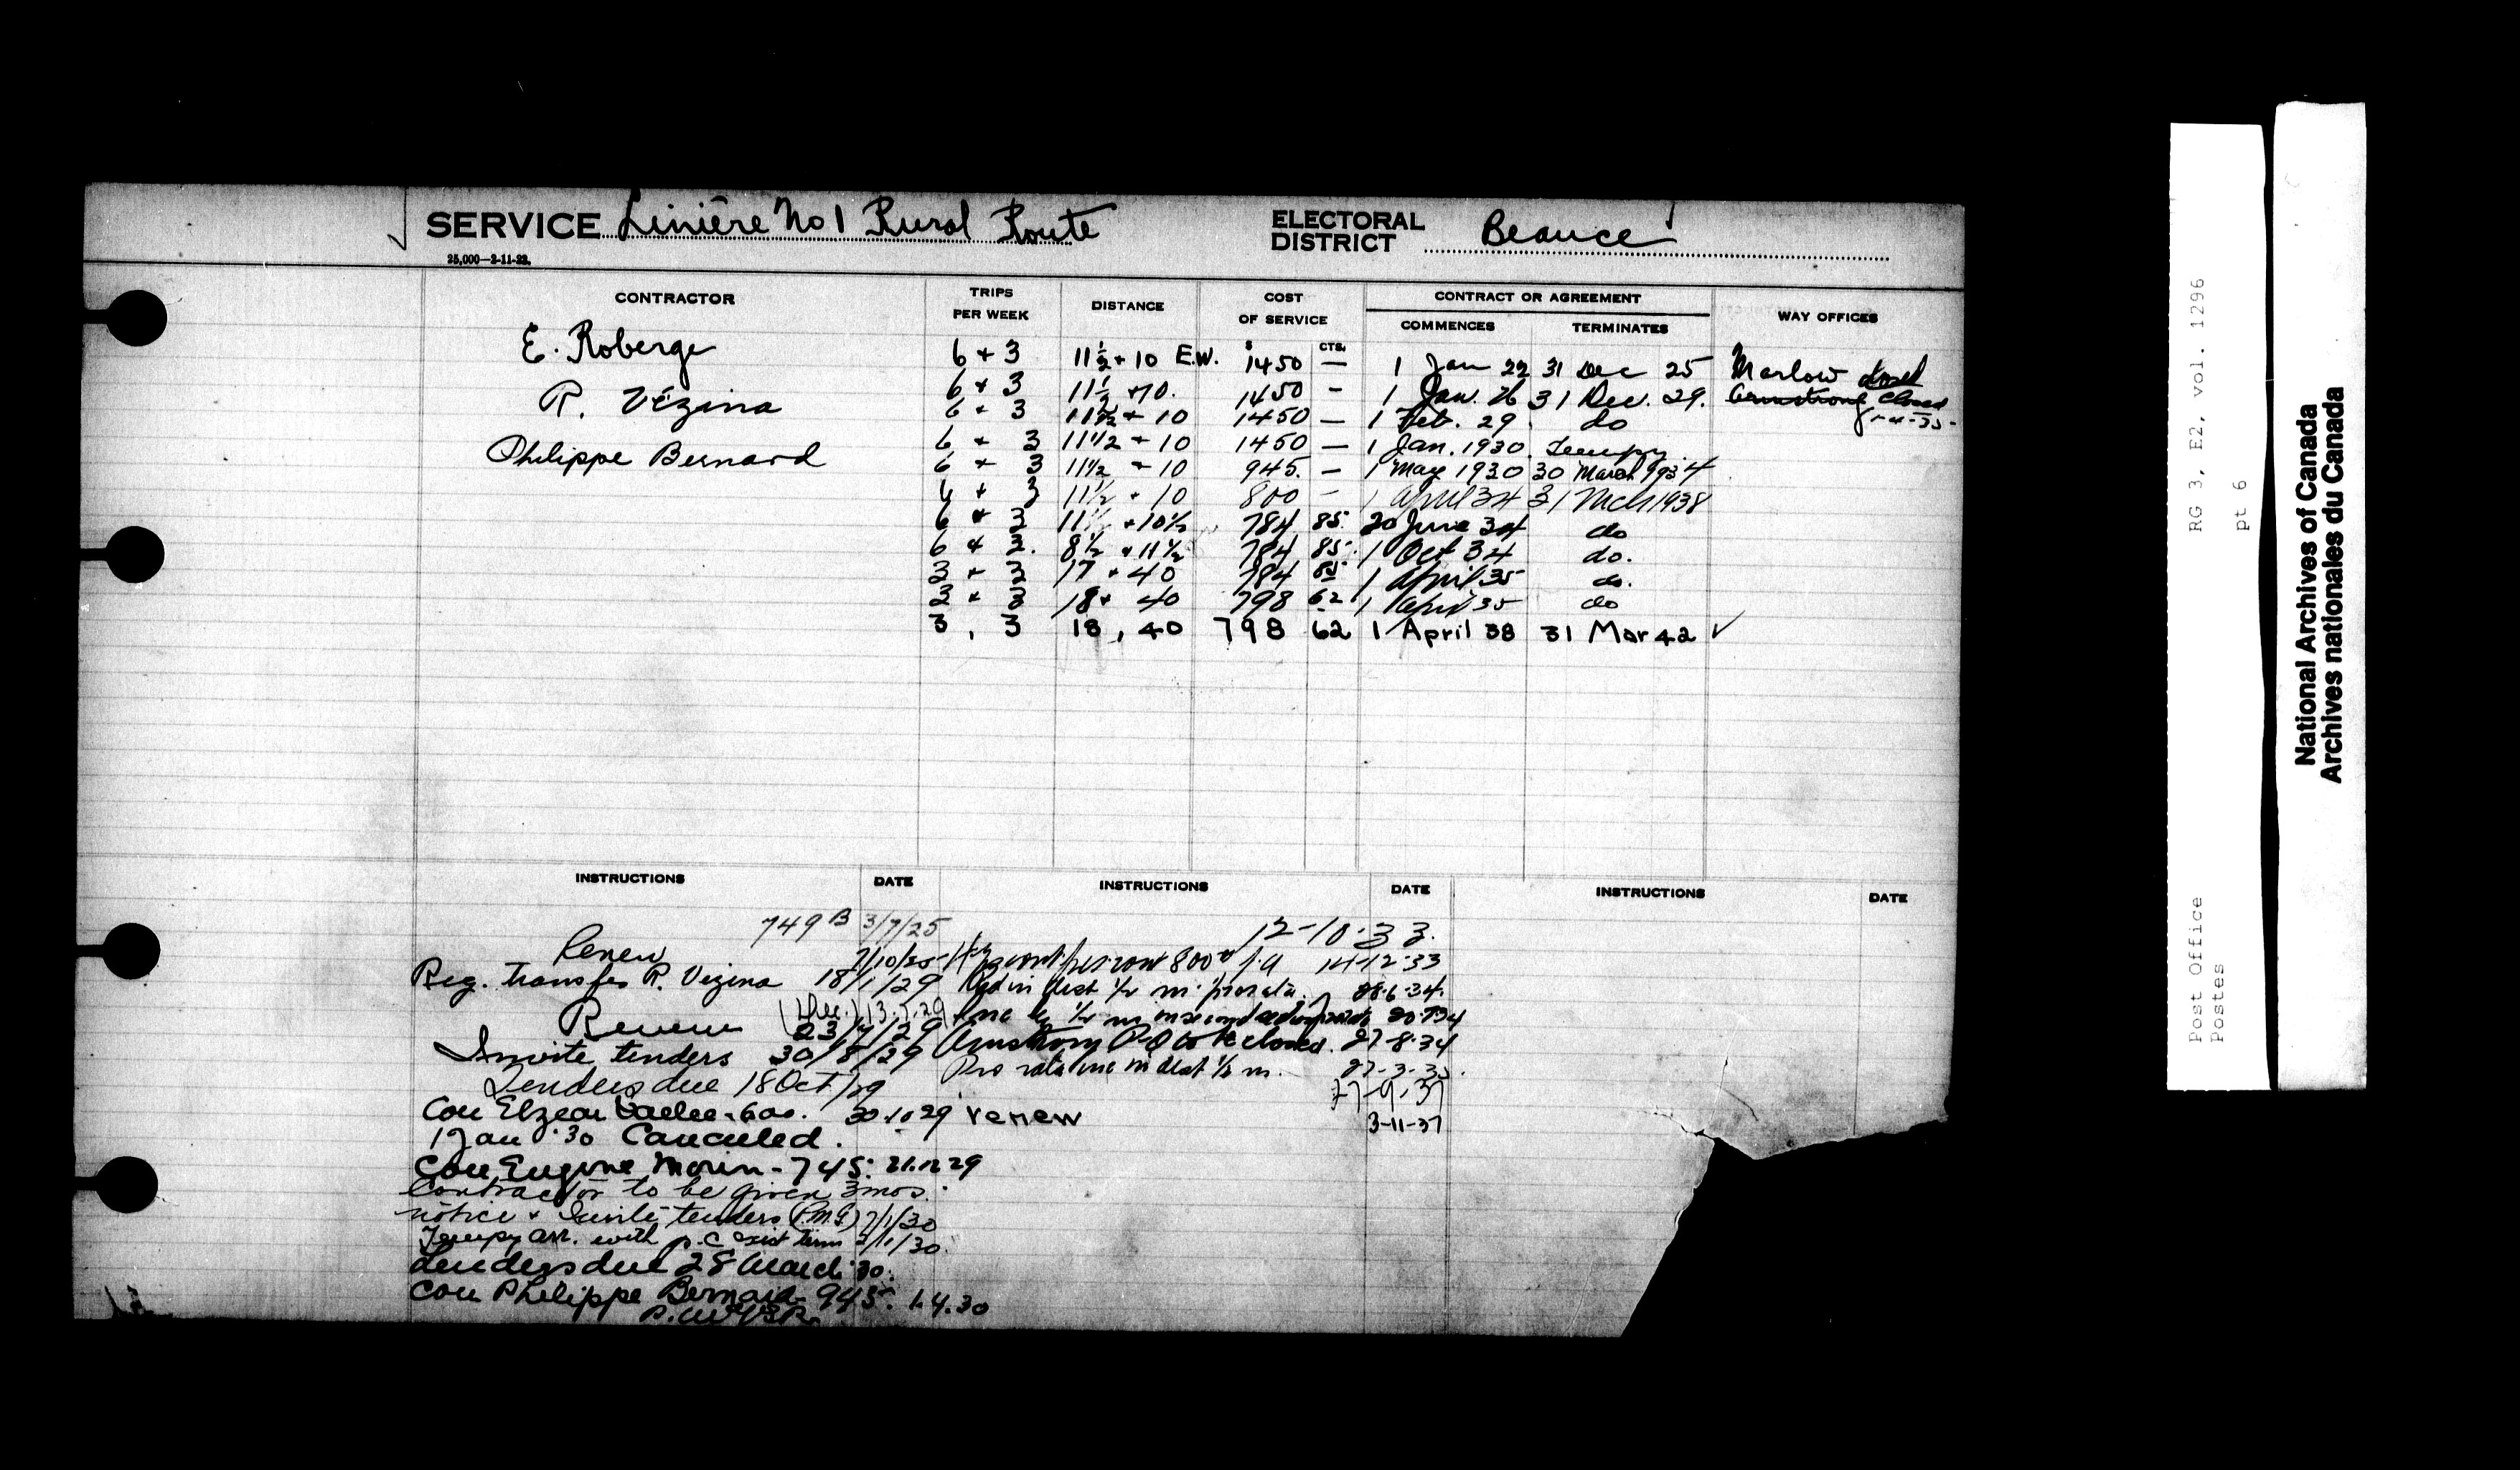 SERVICE Linière No 1 Rural Route
ELECTORAL DISTRICT Beauce
25,000—2-11-22.
CONTRACTOR TRIPS PER WEEK DISTANCE COST OF SERVICE CONTRACT OR AGREEMENT WAY OFFICES
COMMENCES TERMINATES
$ CTS.
E. Roberge 6 + 3 11½ + 10 E.W. 1450 — 1 Jan 22 31 Dec 25 Marlow closed
6 + 3 11½ + 10. 1450 - 1 Jan. 26 31 Dec. 29. Armstrong closed
R. Vézina 6 + 3 11½ + 10 1450 — 1 Feb. 29. do
6 + 3 11½ + 10 1450 — 1 Jan. 1930. Tempy.
Philippe Bernard 6 + 3 11½ + 10 945. — 1 May 1930 30 March 1934
6 + 3 11½ + 10 800 — 1 April 34 31 Mch 1938
6 + 3 11½ + 10½ 784 85 20 June 34 do
6 + 2. 8½ + 11½ 784 85 1 Oct 34 do.
3 + 3 17 + 40 784 85 1 April 35 do.
3 + 3 18 + 40 798 62 1 April 35 do
3, 3 18, 40 798 62 1 April 38 31 Mar 42 ✓
INSTRUCTIONS DATE INSTRUCTIONS DATE INSTRUCTIONS DATE
749 B 3/7/25
Renew 7/10/25
Reg. transfer R. Vezina 18/1/29
Renew 23/4/29
Invite tenders 30/8/29
Tenders due 18 Oct/29
Con Elzear Vallee - 600. 30.10.29
1 Jan '30 Canceled.
Con Eugene Morin - 745. 21.12.29
Contractor to be given 3 mos.
notice + Invite tenders (P.M.G) 7/1/30
Tempy arr. with p.c exist term 2/1/30.
Tenders due 28 March '30.
Con Philippe Bernard 945. 1.4.30
12-10-33.
800 14-12-33
Red in dist ½ m. pro rata. 28-6-34.
Armstrong P.O to be closed. 27-8-34
Pro rata inc in dist ½ m. 27-3-35.
27-9-37
renew 3-11-37
RG 3, E2, vol. 1296
pt 6
Post Office
Postes
National Archives of Canada
Archives nationales du Canada